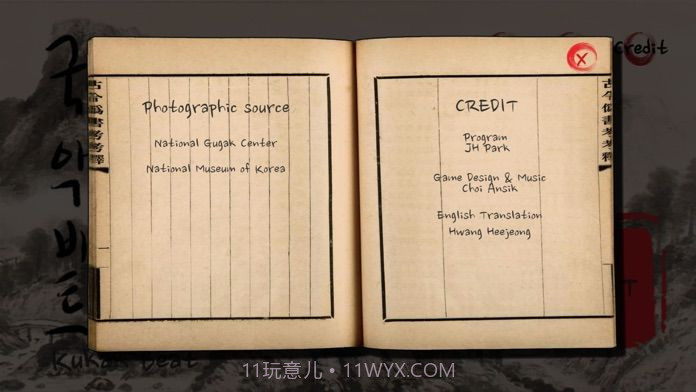 국악비트
Kukak Beat
Credit
X
Photographic source
National Gugak Center
National Museum of Korea
CREDIT
Program
JH Park
Game Design & Music
Choi Ansik
English Translation
Hwang Heejeong
古今僞書考考釋
古今僞書考考釋
T
11玩意儿·11WYX.COM